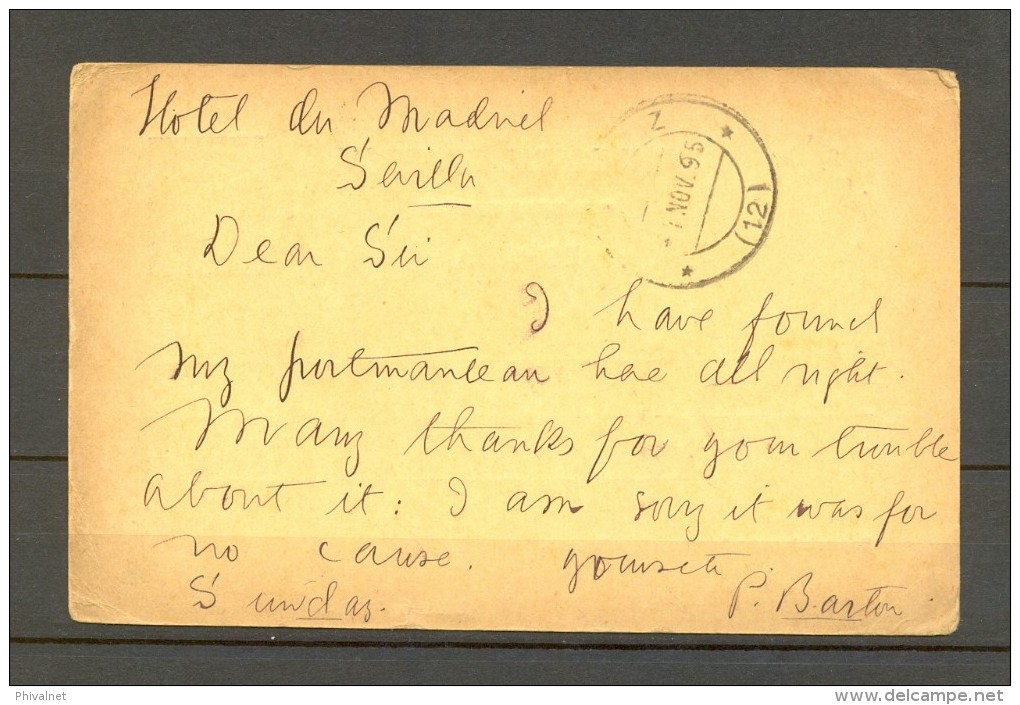 Hotel du Madrid
Sevilla
Dear Sir
I have found
my portmanteau here all right.
Many thanks for your trouble
about it: I am sorry it was for
no cause. yours etc.
Sunday.
P. Barton.
Z
NOV. 95
(12)
Phivalnet
www.delcampe.net